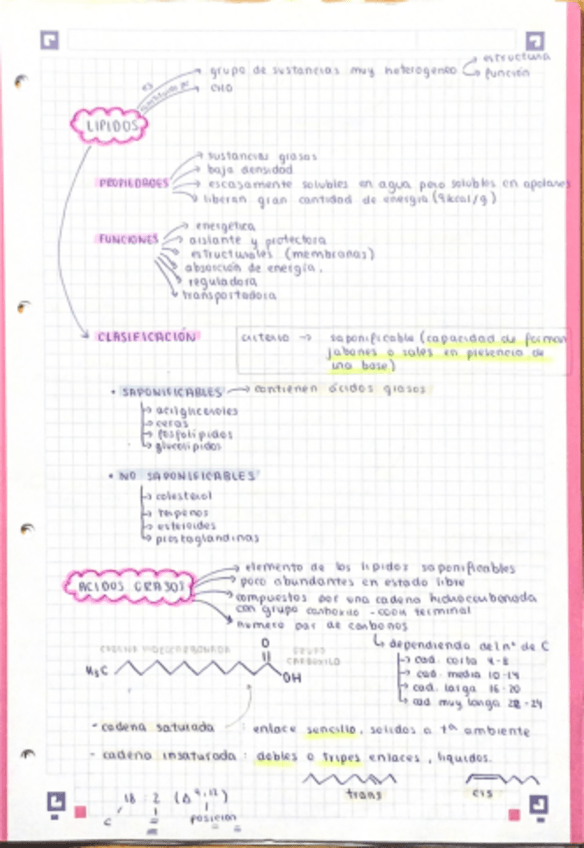 estructura
grupo de sustancias muy heterogeneo
función
es
CHO
LIPIDOS
sustancias grasas
baja densidad
PROPIEDADES
escasamente solubles en agua pero solubles en apolares
liberan gran cantidad de energía (9kcal/g)
energética
FUNCIONES
aislante y protectora
estructurales (membranas)
absorción de energía.
reguladora
transportadora
CLASIFICACIÓN
criterio → saponificable (capacidad de forman
jabones o sales en presencia de
una base)
• SAPONIFICABLES → contienen ácidos grasos
acilgliceroles
ceras
fosfolípidos
glucolípidos
• NO SAPONIFICABLES
colesterol
terpenos
esteroides
prostaglandinas
elemento de los lipidos saponificables
ACIDOS GRASOS
poco abundantes en estado libre
compuestos por una cadena hidrocarbonada
con grupo carboxilo -COOH terminal
numero par de carbonos
dependiendo del nº de C
CADENA HIDROCARBONADA
O
GRUPO
CARBOXILO
cad. corta 4-8
H₃C
OH
cad. media 10-14
cad. larga 16-20
cad muy larga 22-24
- cadena saturada : enlace sencillo, solidos a tª ambiente
- cadena insaturada : dobles o tripes enlaces, liquidos.
trans
cis
18 : 2 (Δ 9,12)
C
posición